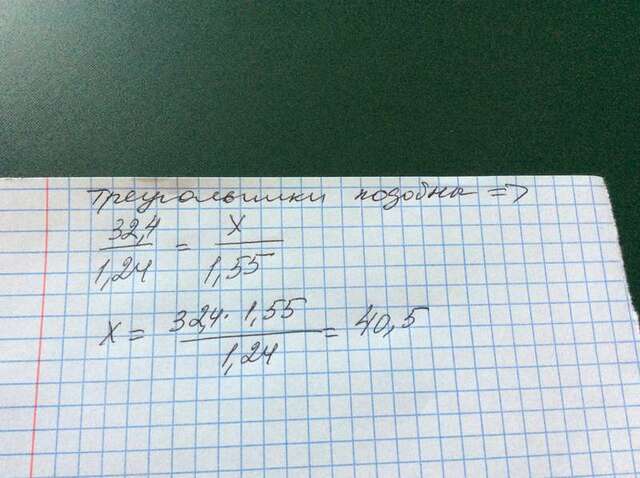 Треугольники подобны =>
32,4/1,24 = x/1,55
x = 32,4 · 1,55/1,24 = 40,5